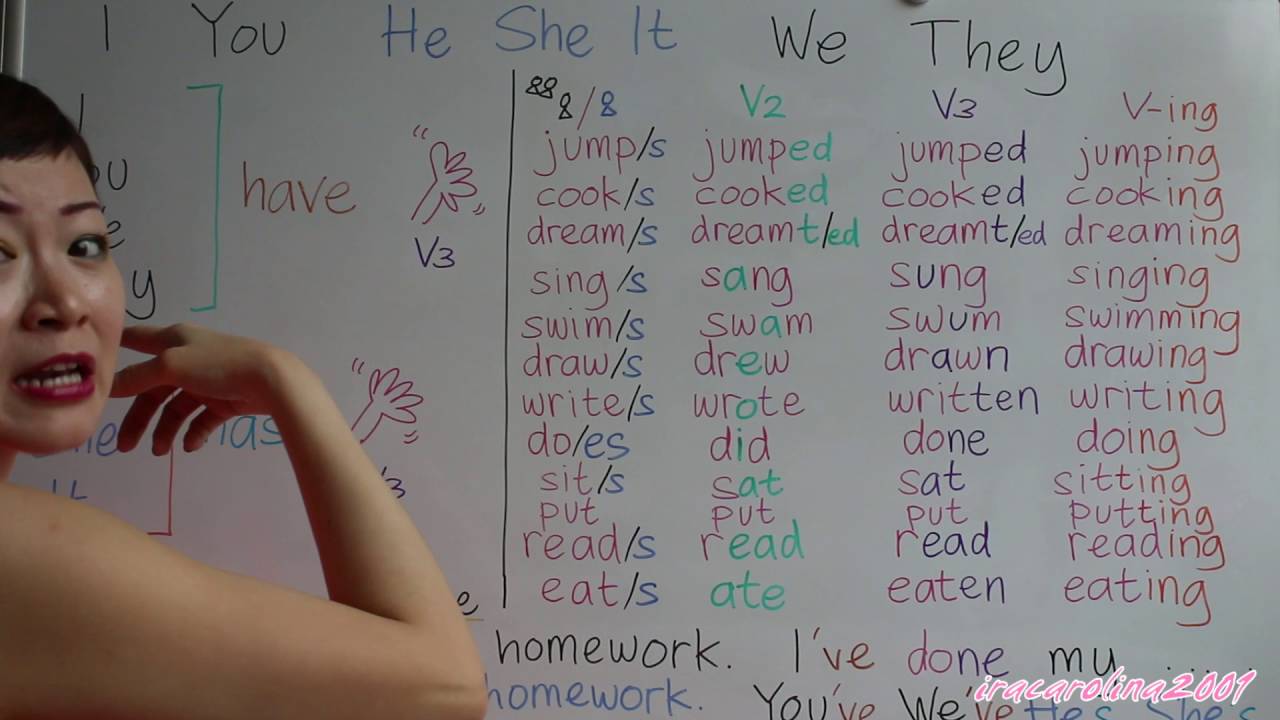 I You He She It We They
8/8 V2 V3 V-ing
have
V3
has
jump/s jumped jumped jumping
cook/s cooked cooked cooking
dream/s dreamt/ed dreamt/ed dreaming
sing/s sang sung singing
swim/s swam swum swimming
draw/s drew drawn drawing
write/s wrote written writing
do/es did done doing
sit/s sat sat sitting
put put put putting
read/s read read reading
eat/s ate eaten eating
homework. I've done my ....
homework. You've We've He's She's
iracarolina2001